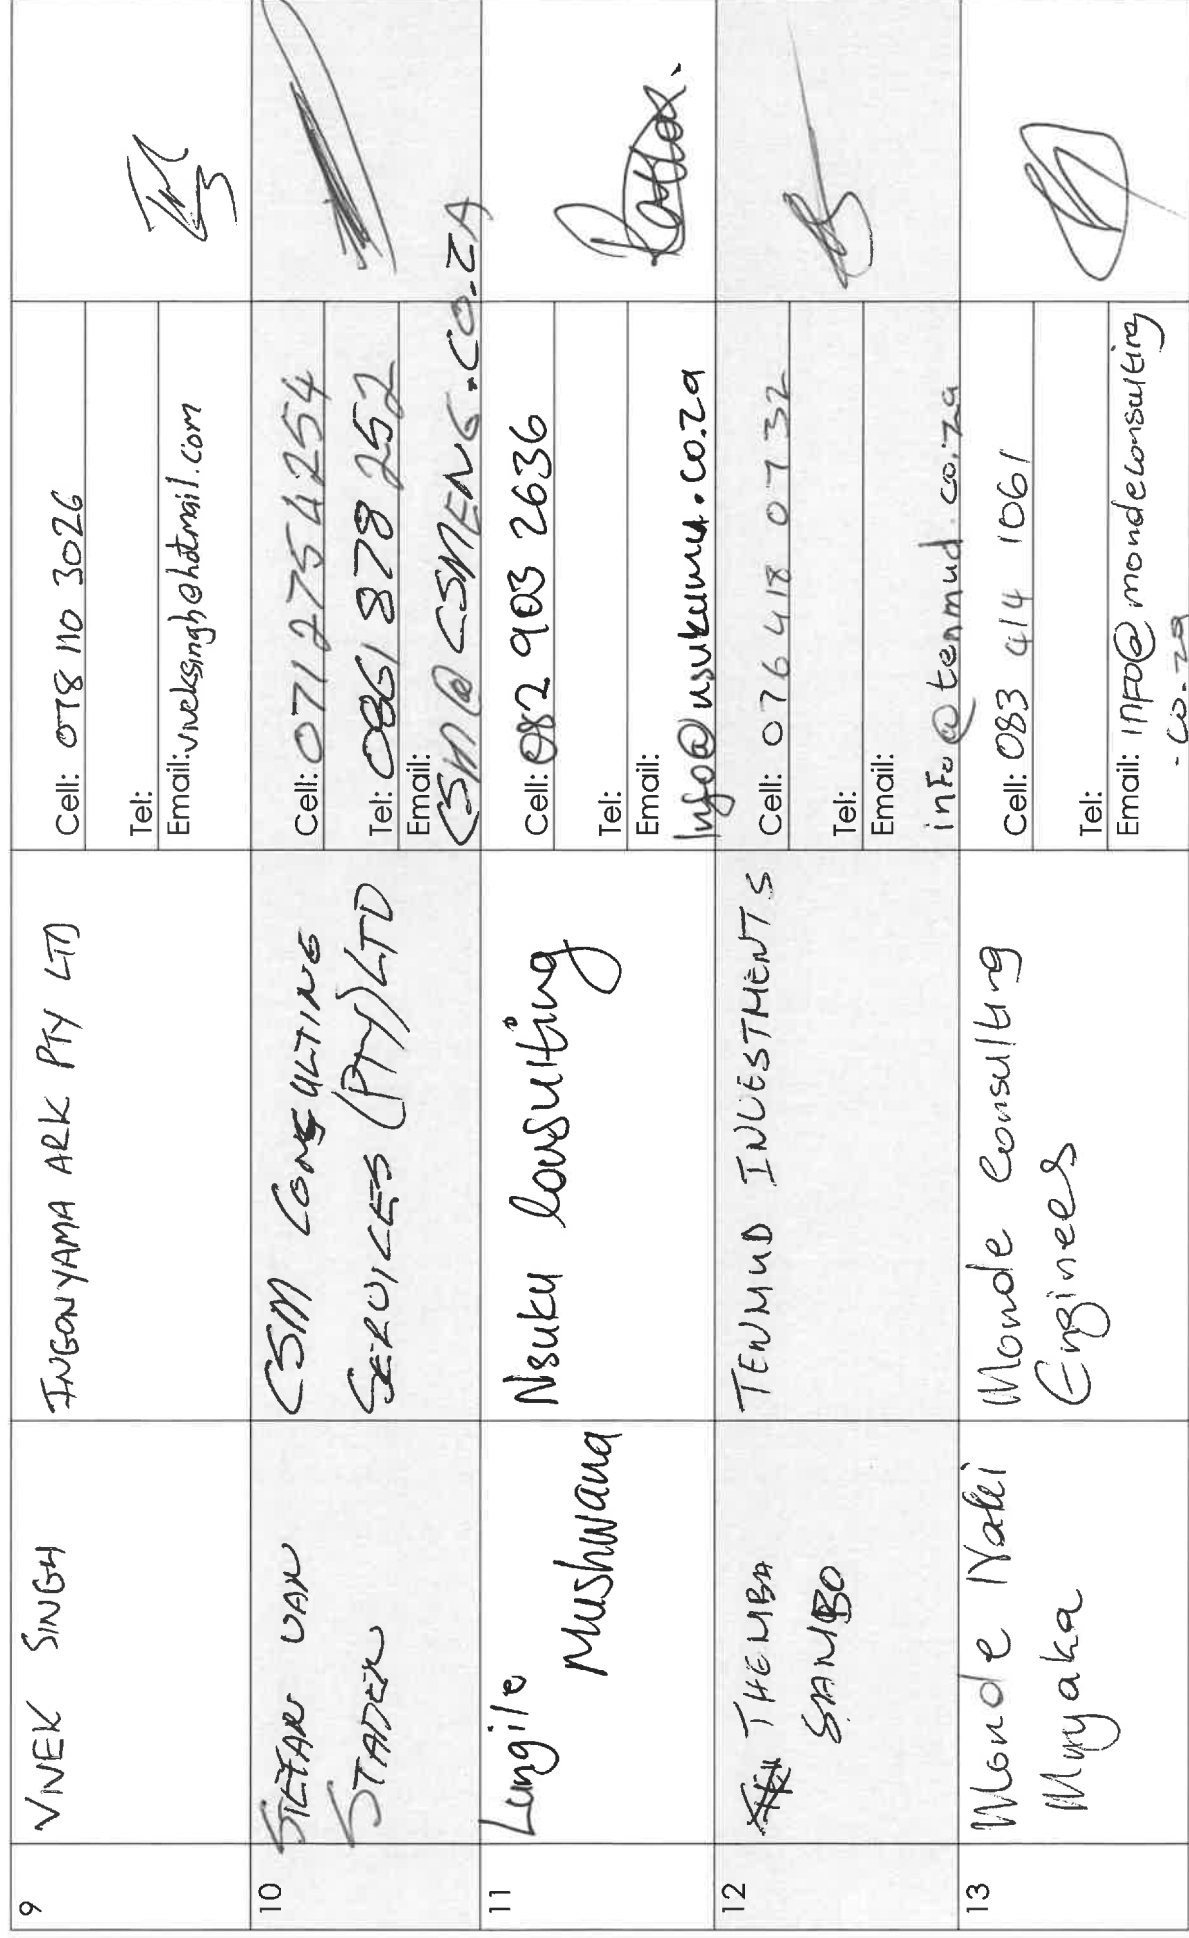 9
VIVEK SINGH
INGONYAMA ARK PTY LTD
Cell: 078 110 3026
Tel:
Email: viveksingh@hotmail.com
10
STEFAN VAN
STADEN
CSM CONSULTING
SERVICES (PTY) LTD
Cell: 0712754254
Tel: 0861 878 252
Email:
CSM@CSMENG.CO.ZA
11
Lungile
Mushwana
Nsuku Consulting
Cell: 082 903 2636
Tel:
Email:
Info@nsukumu.co.za
12
THEMBA
SAMBO
TENMUD INVESTMENTS
Cell: 076 418 0732
Tel:
Email:
info@tenmud.co.za
13
Monde
Mnyaka
Monde Consulting
Enginees
Cell: 083 414 1061
Tel:
Email: INFO@mondeconsulting
.co.za